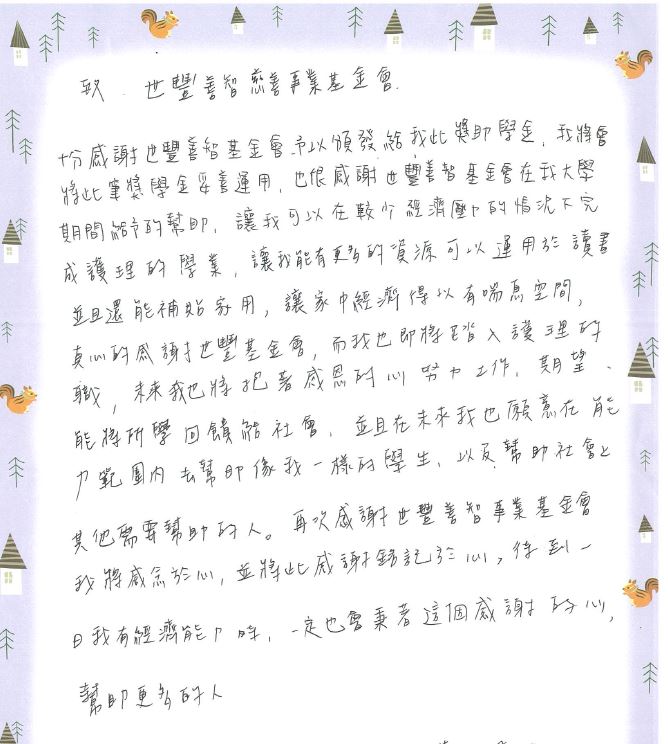 致．世豐善智慈善事業基金會.
十份感謝世豐善智基金會予以頒發給我此獎助學金，我將會
將此筆獎學金妥善運用，也很感謝世豐善智基金會在我大學
期間給予的幫助，讓我可以在較少經濟壓力的情況下完
成護理的學業，讓我能有更多的資源可以運用於讀書
並且還能補貼家用，讓家中經濟得以有喘息空間，
真心的感謝世豐基金會，而我也即將踏入護理的
職，未來我也將抱著感恩的心努力工作，期望
能將所學回饋給社會，並且在未來我也願意在能
力範圍內去幫助像我一樣的學生，以及幫助社會上
其他需要幫助的人。再次感謝世豐善智事業基金會
我將感念於心，並將此感謝銘記於心，待到一
日我有經濟能力時，一定也會秉著這個感謝的心，
幫助更多的人